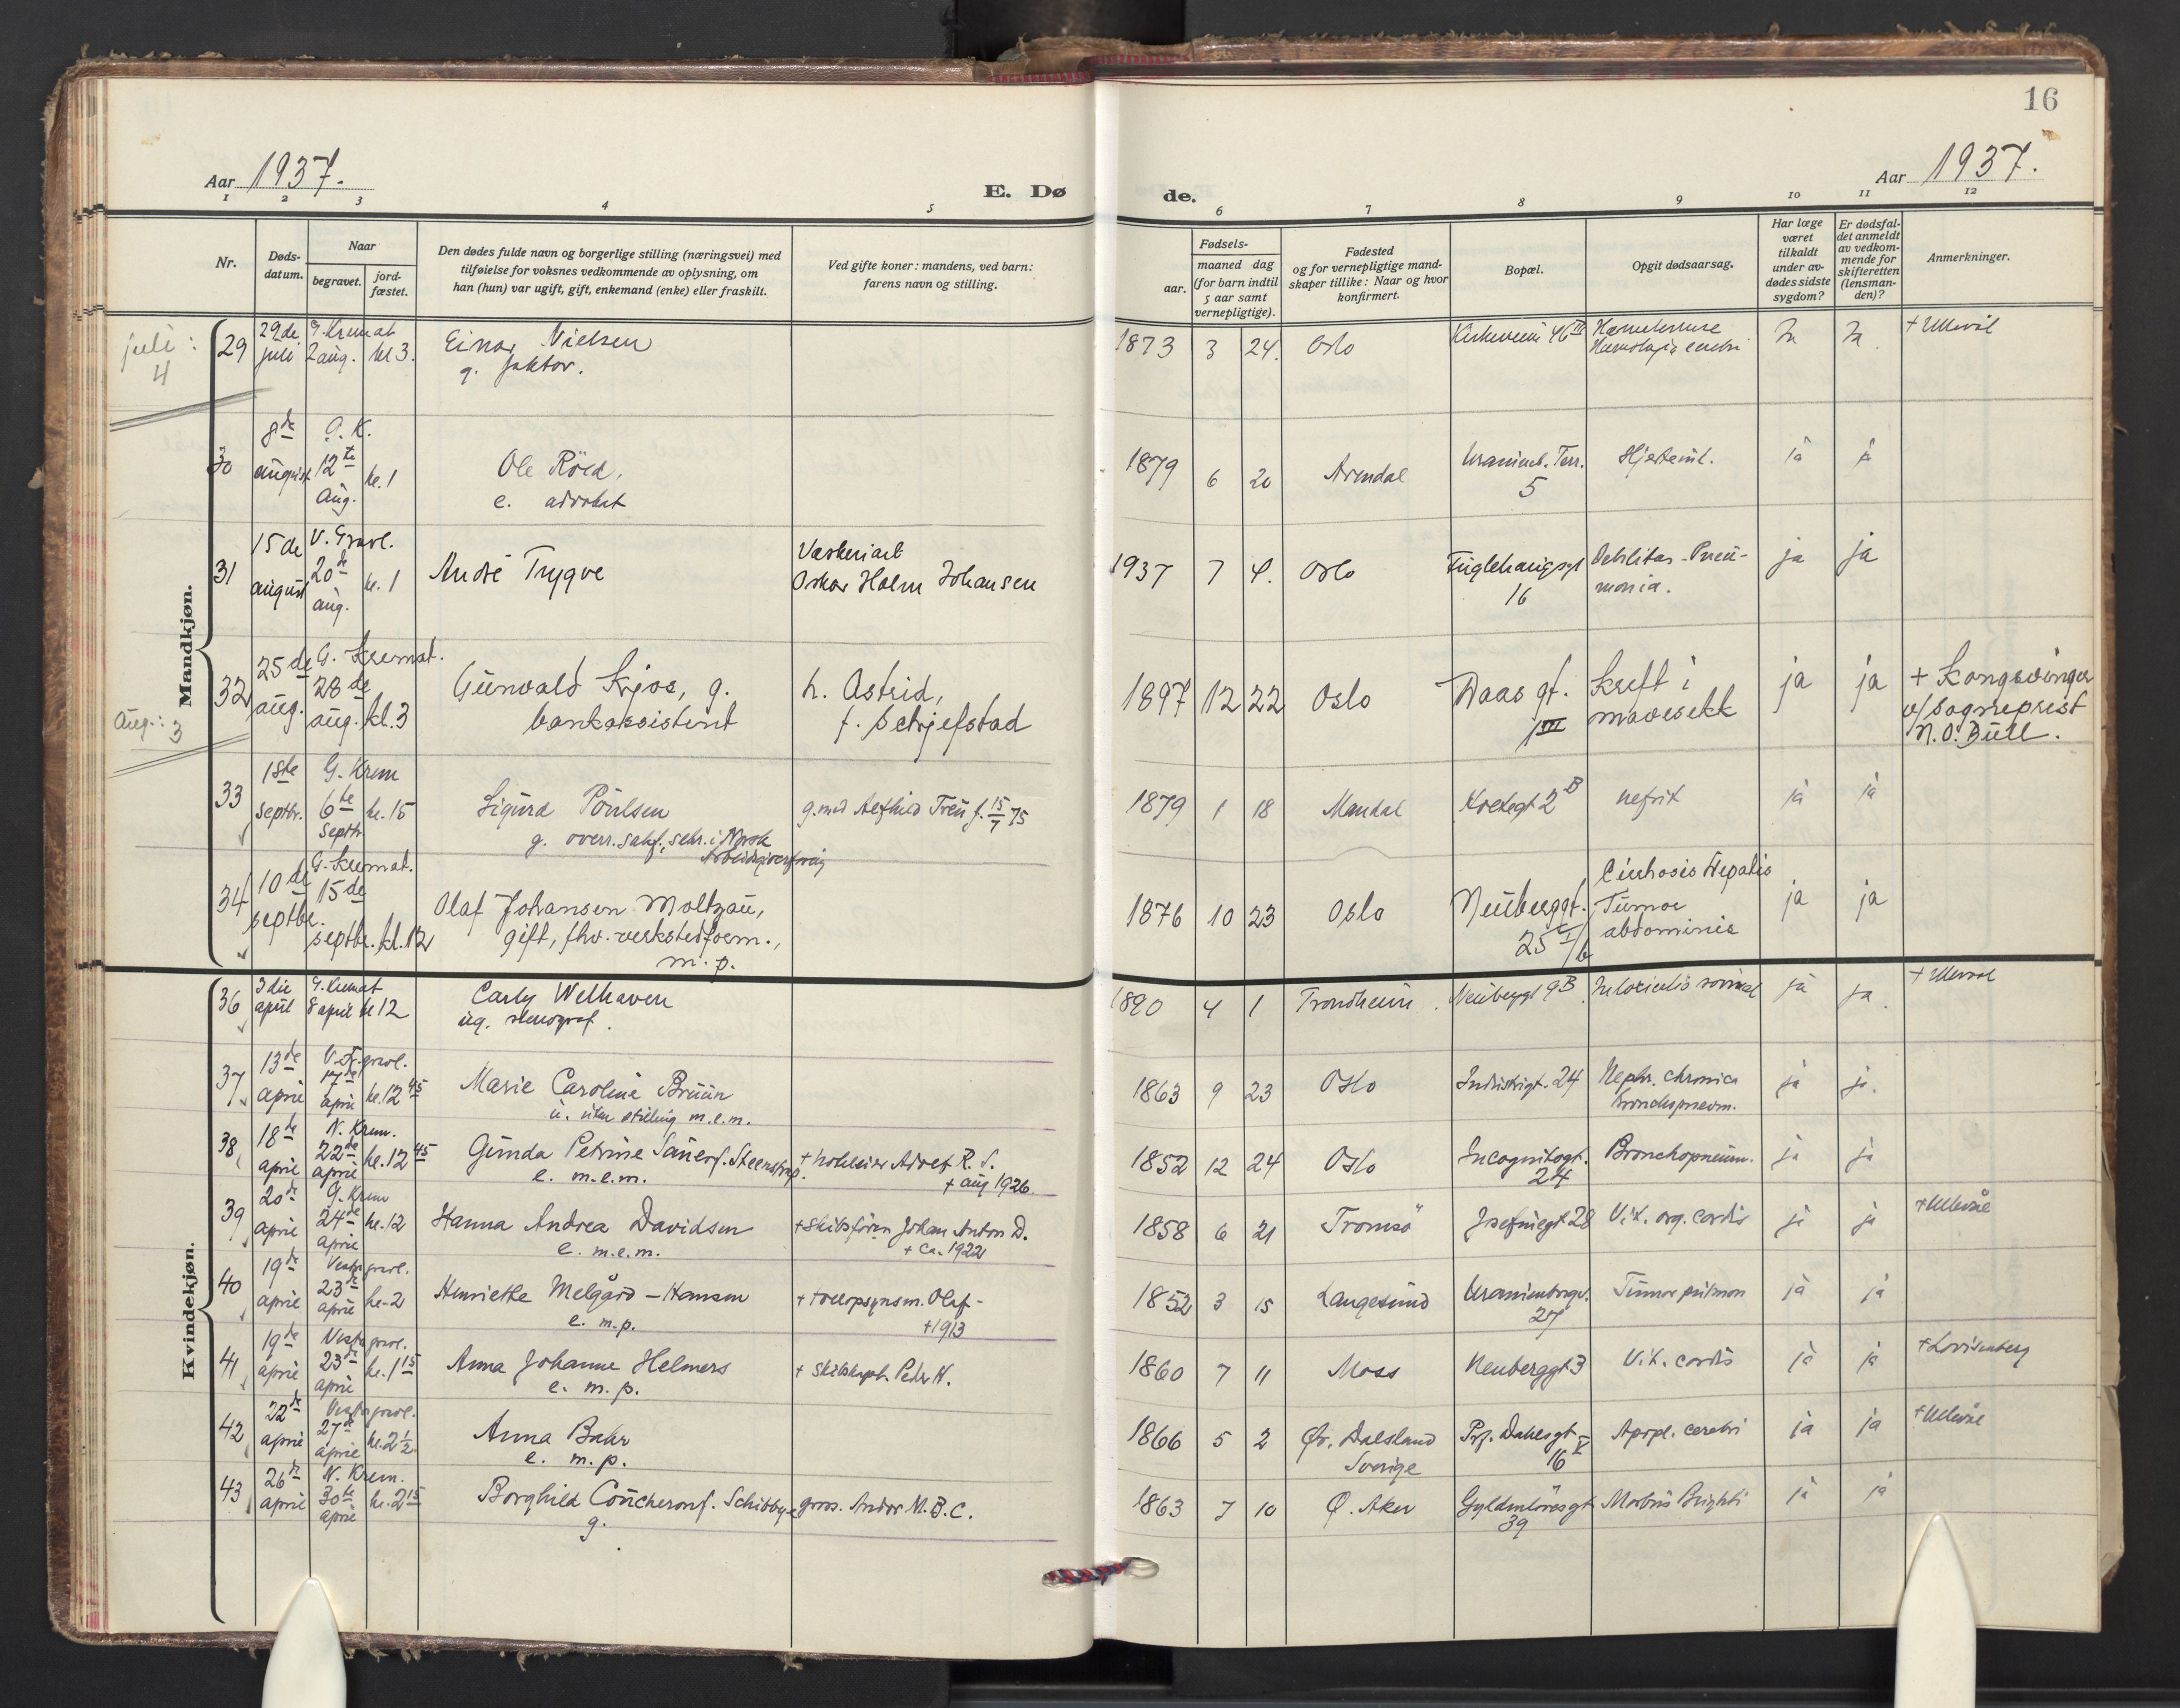 16
Aar 1937.
E. Dø
de.
Aar 1937.
1 2 3 4 5 6 7 8 9 10 11 12
Nr.
Døds-
datum.
Naar
begravet.
jord-
fæstet.
Den dødes fulde navn og borgerlige stilling (næringsvei) med
tilføielse for voksnes vedkommende av oplysning, om
han (hun) var ugift, gift, enkemand (enke) eller fraskilt.
Ved gifte koner: mandens, ved barn:
farens navn og stilling.
Fødsels-
aar.
maaned dag
(for barn indtil
5 aar samt
vernepligtige).
Fødested
og for vernepligtige mand-
skaper tillike: Naar og hvor
konfirmert.
Bopæl.
Opgit dødsaarsag.
Har læge
været
tilkaldt
under av-
dødes sidste
sygdom?
Er dødsfal-
det anmeldt
av vedkom-
mende for
skifteretten
(lensman-
den)?
Anmerkninger.
Mandkjøn.
juli:
4
29 29de juli G. Kremat 2 aug. kl 3. Einar Nielsen
g. faktor.
1873 3 24. Oslo Kirkeveien 46 III Ja Ja + Ullevål
30 8de august G. K. 12te aug. kl. 1 Ole Röed,
e. advokat
1879 6 20 Arendal Uranienb. Terr. 5 ja ja
31 15de august V. Gravl. 20de aug. kl. 1 André Trygve
Oskar Holm Johansen
1937 7 4. Oslo Fuglehauggt 16 Debilitas - Pneu-
monia. ja ja
aug.: 3
32 25de aug. G. Kremat. 28de aug. kl. 3 Gunvald Kjos, g.
bankassistent
h. Astrid,
f. Schjefstad
1897 12 22 Oslo Daas gt. Kreft i
mavesekk ja ja + Kongsvinger
v/ sogneprest
N. O. Bull.
33 1ste septbr. G. Krem 6te septbr kl. 15 Sigurd Poulsen
g. overr. sakf., sekr. i Norsk
Arbeidsgiverforening
g. med f. 15/7 75
1879 1 18 Mandal 2B nefrit ja ja
34 10de septbr. G. Kremat. 15de septbr. kl. 12 Olaf Johansen Moltzau,
gift, fhv. verkstedform.,
m. p.
1876 10 23 Oslo Neuberggt. 25 I/b Cirrhosis Hepatis
Tumor
abdominis ja ja
Kvindekjøn.
36 3die april G. Kremat 8 april kl 12 Carly Welhaven
ug. stenograf.
1890 4 1 Trondheim Neuberggt 9B ja ja + Ullevål
37 13de april V. gravl. 17de april kl. 12 45 Marie Caroline Bruun
u. uten stilling m.e.m.
1863 9 23 Oslo Industrigt. 24 Nephr. chronica
bronchopneum. ja ja.
38 18de april N. Krem. 22de april kl. 12 45 Gunda Petrine Sauer f. Steenstrup.
e. m.e.m.
+ Adolf R. S.
+ aug 1926
1852 12 24 Oslo Incognitogt. 24 Bronchopneum. ja ja
39 20de april G. Krem 24de april kl. 12 Hanna Andrea Davidsen
e. m.e.m.
+ Skibsfører Johan Anton D.
+ ca. 1922
1858 6 21 Tromsö Josefinegt 28 Vit. org. cordis ja ja + Ullevål
40 19de april Vestre gravl. 23de april kl. 2 Henriette Melgård - Hansen
e. m.p.
+ Tollopsynsm. Olaf -
+ 1913
1852 3 15 Langesund Uranienborgv. 27 Tumor pulmon ja ja
41 19de april Vestre gravl. 23de april kl. 1 15 Anna Johanne Helmers
e. m. p.
+ Skibskapt. Peder H.
1860 7 11 Moss Neuberggt 3 Vit. cordis ja ja + Lovisenberg
42 22de april Vestre gravl. 27de april kl. 2 1/2 Anna Bahr
e. m. p.
1866 5 2 Øv. Dalsland
Sverige Prf. Dahlsgt 16 V Apopl. cerebri ja ja + Ullevål
43 26de april N. Krem. 30te april kl. 2 15 Borghild Coucheron f. Schibbye
g.
gross. Andor M. B. C.
1863 7 10 Ø. Aker Gyldenlövesgt 39 Morbus Brighti ja ja